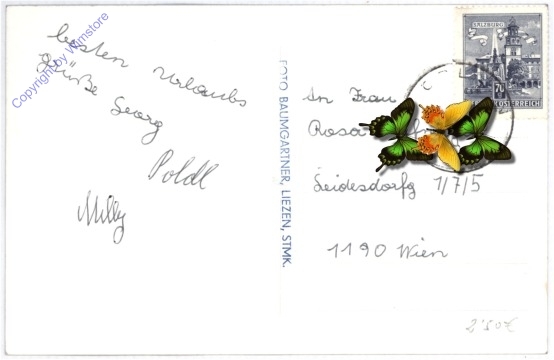 Copyright by Wimstore
besten Urlaubs
Grüße Georg
Poldl
Milly
FOTO BAUMGARTNER, LIEZEN, STMK.
SALZBURG
70
An Frau
Rosa
Leidesdorfg 1/7/5
1190 Wien
2'50€